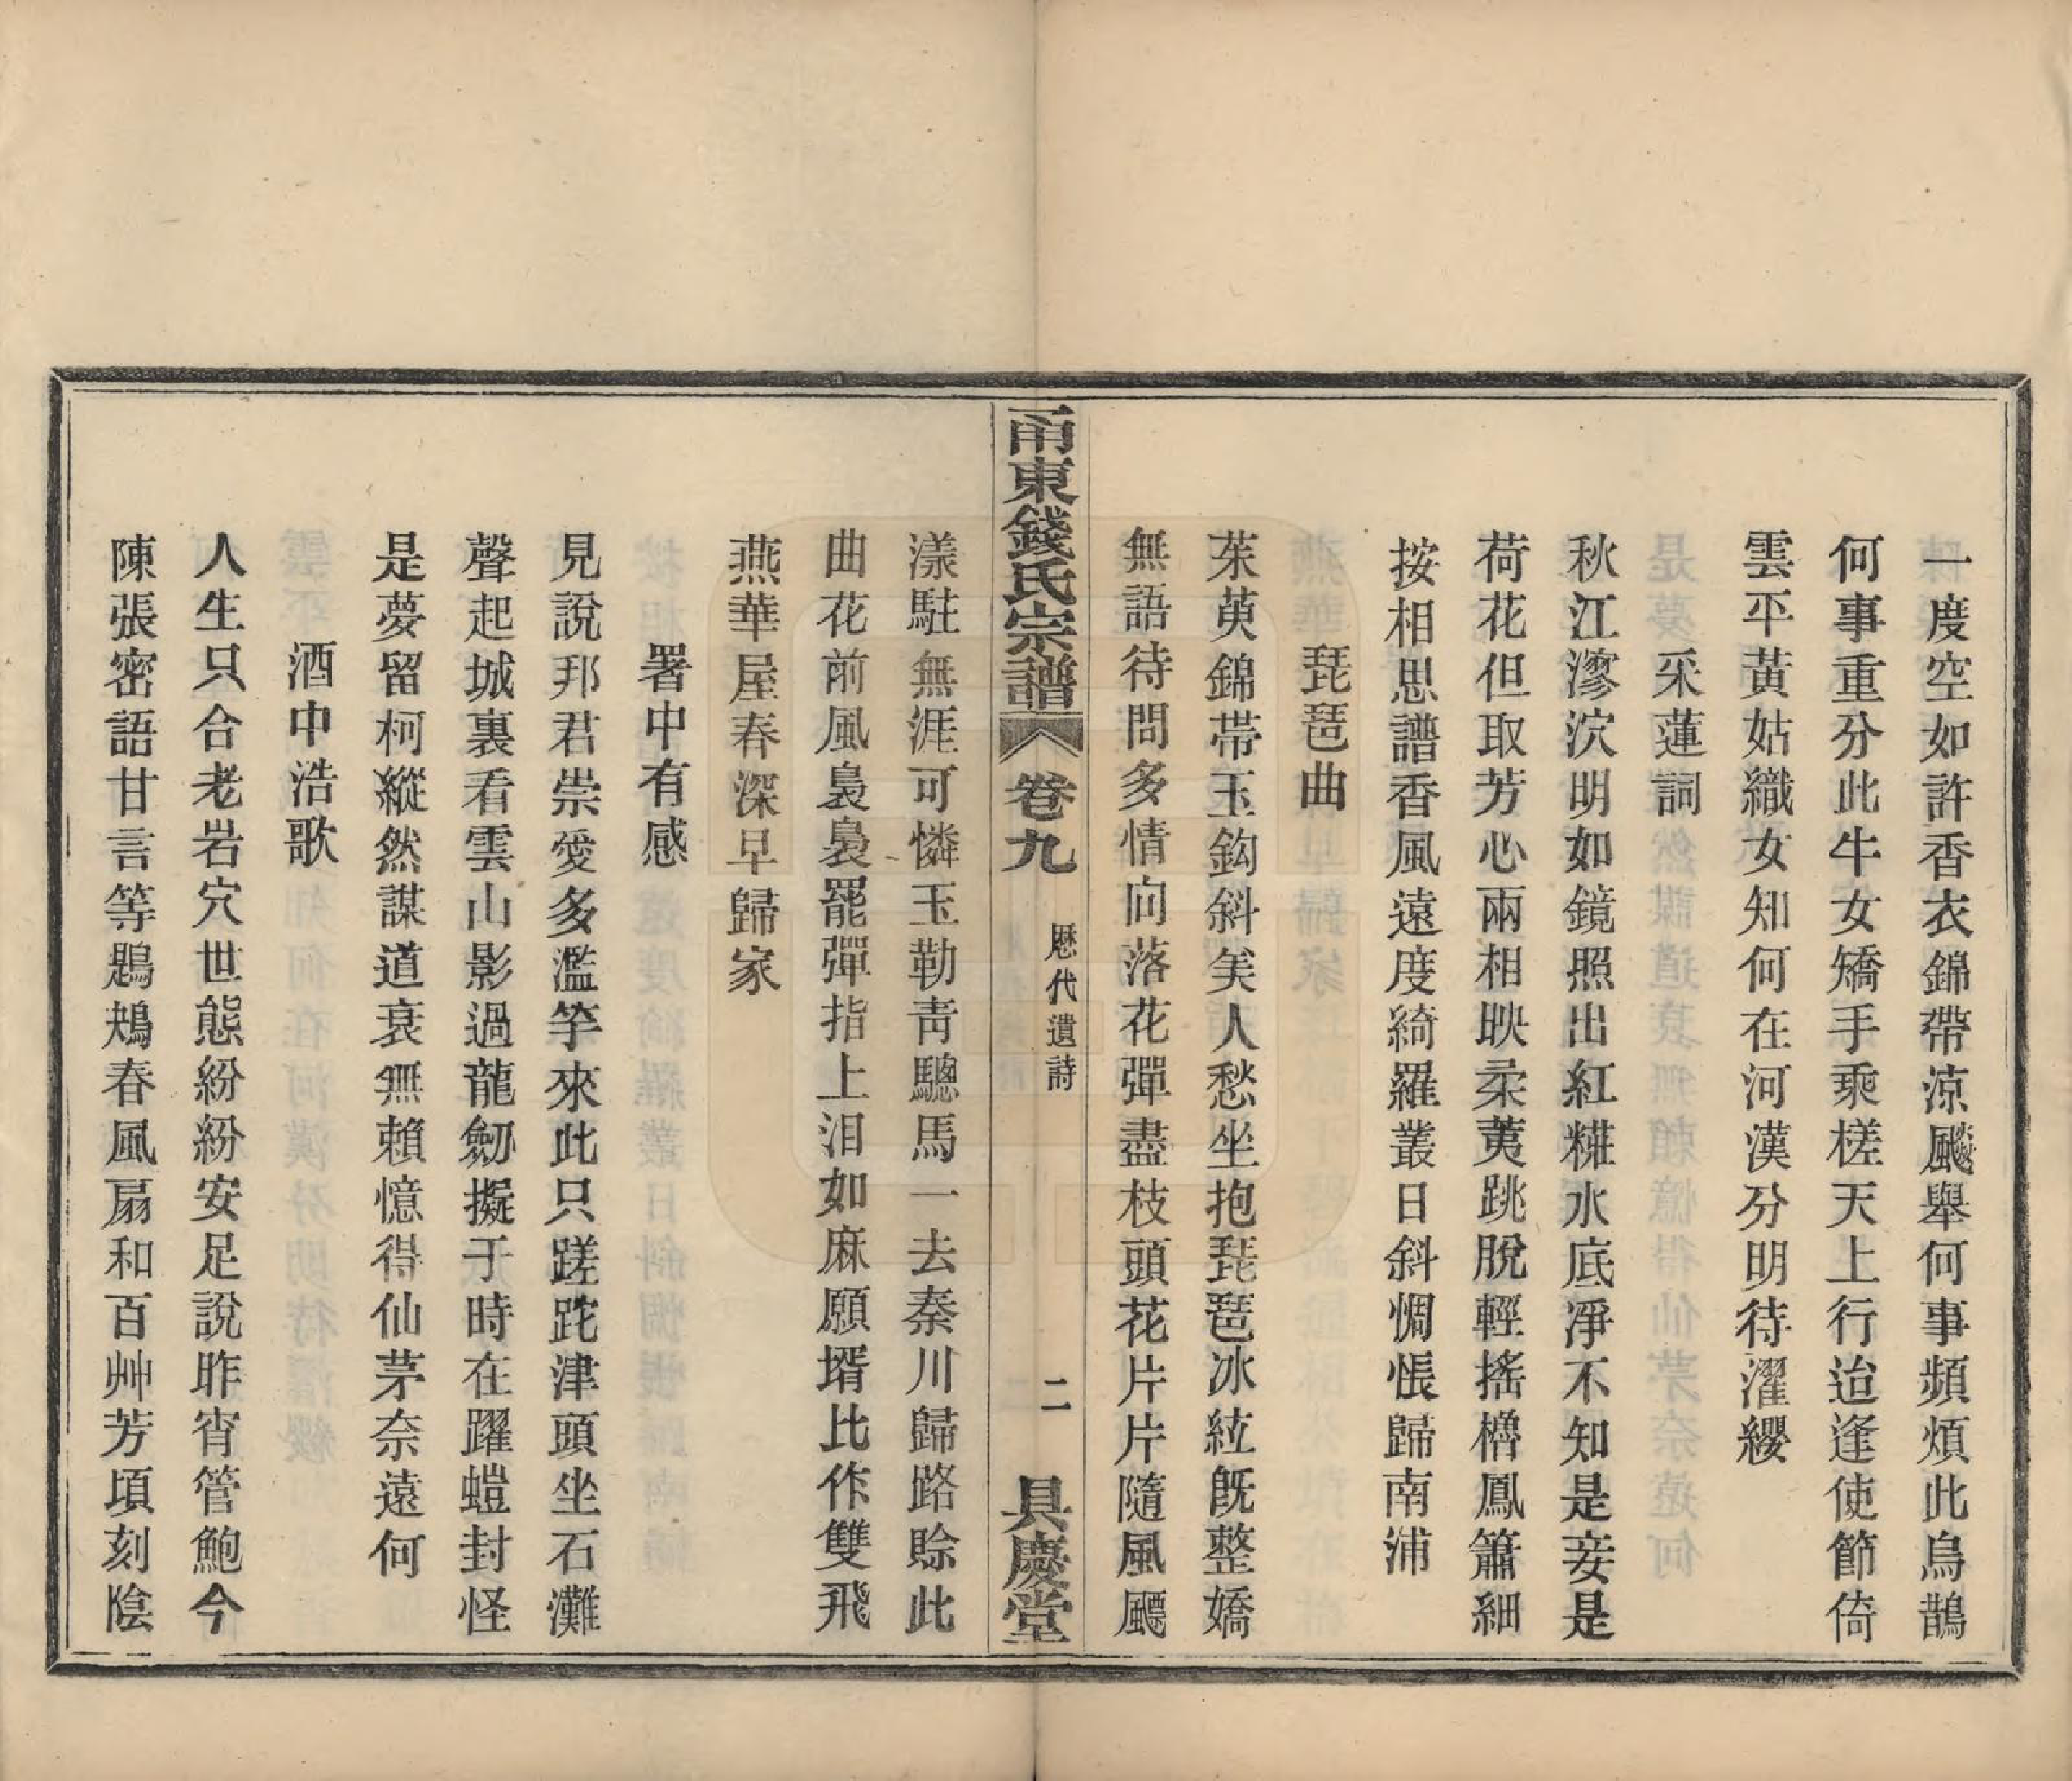 一度空如許香衣錦帶涼颷舉何事頻煩此烏鵲
何事重分此牛女矯手乘槎天上行迨逢使節倚
雲平黃姑織女知何在河漢分明待濯纓
采蓮詞
秋江漻泬明如鏡照出紅糚水底凈不知是妾是
荷花但取芳心兩相映柔荑跳脫輕搖櫓鳳簫細
按相思譜香風遠度綺羅叢日斜惆悵歸南浦
琵琶曲
茱萸錦帶玉鈎斜美人愁坐抱琵琶冰絃旣整嬌
無語待問多情向落花彈盡枝頭花片片隨風颺
甬東錢氏宗譜 卷九 歷代遺詩 二 具慶堂
漾駐無涯可憐玉勒靑驄馬一去秦川歸路賒此
曲花前風裊裊罷彈指上泪如麻願壻比作雙飛
燕華屋春深早歸家
署中有感
見說邦君崇愛多濫竽來此只蹉跎津頭坐石灘
聲起城裏看雲山影過龍劒擬于時在躍螘封怪
是夢留柯縱然謀道衰無賴憶得仙茅奈遠何
酒中浩歌
人生只合老岩穴世態紛紛安足說昨宵管鮑今
陳張密語甘言等鶗鴂春風扇和百艸芳頃刻陰